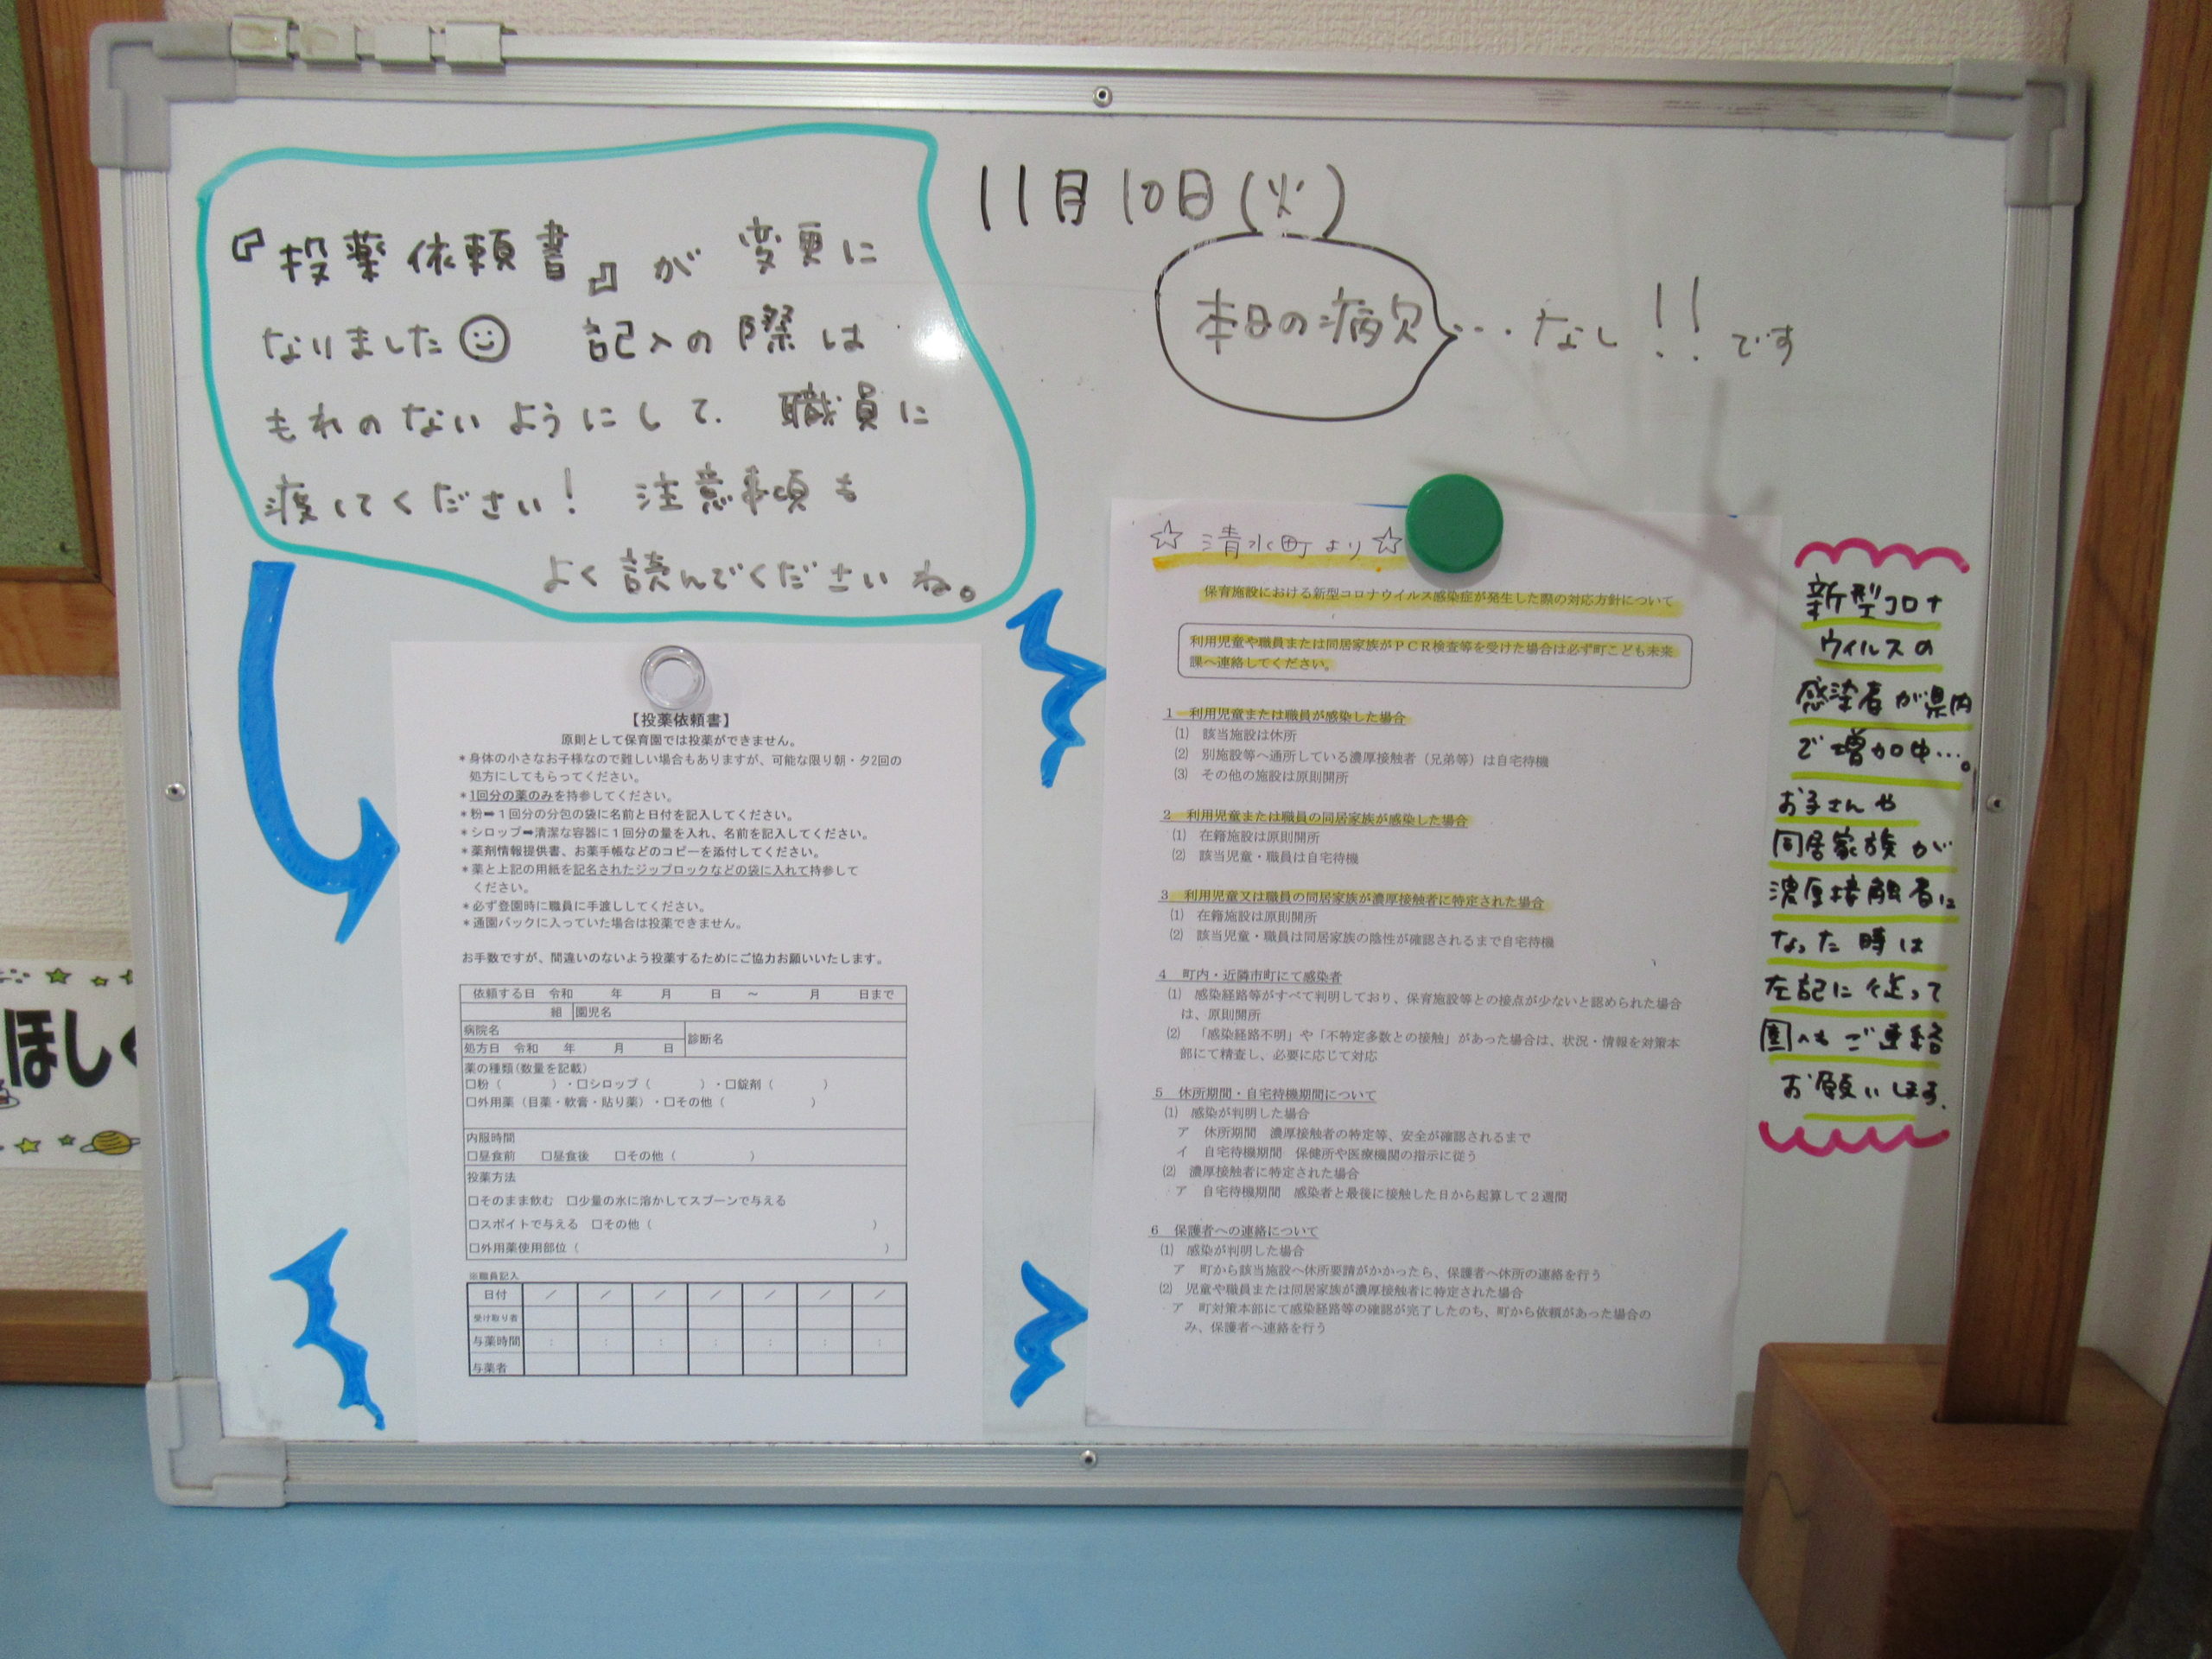 11月10日(火)
本日の病欠…なし!!です
『投薬依頼書』が変更に
なりました 記入の際は
もれのないようにして、職員に
渡してください! 注意事項も
よく読んでくださいね。
【投薬依頼書】
原則として保育園では投薬ができません。
*身体の小さなお子様なので難しい場合もありますが、可能な限り朝・夕2回の
処方にしてもらってください。
*1回分の薬のみを持参してください。
*粉➡1回分の分包の袋に名前と日付を記入してください。
*シロップ➡清潔な容器に1回分の量を入れ、名前を記入してください。
*薬剤情報提供書、お薬手帳などのコピーを添付してください。
*薬と上記の用紙を記名されたジップロックなどの袋に入れて持参して
ください。
*必ず登園時に職員に手渡ししてください。
*通園バックに入っていた場合は投薬できません。
お手数ですが、間違いのないよう投薬するためにご協力お願いいたします。
依頼する日 令和 年 月 日 ~ 月 日まで
組 園児名
病院名
診断名
処方日 令和 年 月 日
薬の種類(数量を記載)
□粉( )・□シロップ( )・□錠剤( )
□外用薬(目薬・軟膏・貼り薬)・□その他( )
内服時間
□昼食前 □昼食後 □その他( )
投薬方法
□そのまま飲む □少量の水に溶かしてスプーンで与える
□スポイトで与える □その他( )
□外用薬使用部位( )
※職員記入
日付 / / / / / / /
受け取り者
与薬時間 : : : : : : :
与薬者
☆ 清水町より ☆
保育施設における新型コロナウイルス感染症が発生した際の対応方針について
利用児童や職員または同居家族がPCR検査等を受けた場合は必ず町こども未来
課へ連絡してください。
1 利用児童または職員が感染した場合
(1) 該当施設は休所
(2) 別施設等へ通所している濃厚接触者(兄弟等)は自宅待機
(3) その他の施設は原則開所
2 利用児童または職員の同居家族が感染した場合
(1) 在籍施設は原則開所
(2) 該当児童・職員は自宅待機
3 利用児童又は職員の同居家族が濃厚接触者に特定された場合
(1) 在籍施設は原則開所
(2) 該当児童・職員は同居家族の陰性が確認されるまで自宅待機
4 町内・近隣市町にて感染者
(1) 感染経路等がすべて判明しており、保育施設等との接点が少ないと認められた場合
は、原則開所
(2) 「感染経路不明」や「不特定多数との接触」があった場合は、状況・情報を対策本
部にて精査し、必要に応じて対応
5 休所期間・自宅待機期間について
(1) 感染が判明した場合
ア 休所期間 濃厚接触者の特定等、安全が確認されるまで
イ 自宅待機期間 保健所や医療機関の指示に従う
(2) 濃厚接触者に特定された場合
ア 自宅待機期間 感染者と最後に接触した日から起算して2週間
6 保護者への連絡について
(1) 感染が判明した場合
ア 町から該当施設へ休所要請がかかったら、保護者へ休所の連絡を行う
(2) 児童や職員または同居家族が濃厚接触者に特定された場合
ア 町対策本部にて感染経路等の確認が完了したのち、町から依頼があった場合の
み、保護者へ連絡を行う
新型コロナ
ウイルスの
感染者が県内
で増加中…。
お子さんや
同居家族が
濃厚接触者に
なった時は
左記に従って
園へもご連絡
お願いします。
ほしく